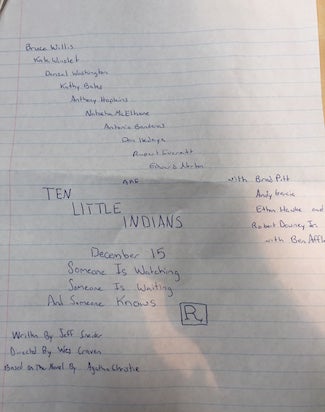 Bruce Willis
Kate Winslet
Denzel Washington
Kathy Bates
Anthony Hopkins
Natascha McElhone
Antonio Banderas
Don
Rupert Everett
Edward Norton
are
with Brad Pitt
Andy
Ethan Hawke and
Robert Downey Jr.
with Ben Affle
TEN
LITTLE
INDIANS
December 15
Someone Is Watching
Someone Is Waiting
And Someone Knows
R
Written By Jeff
Directed By Wes Craven
Based on The Novel By Agatha Christie